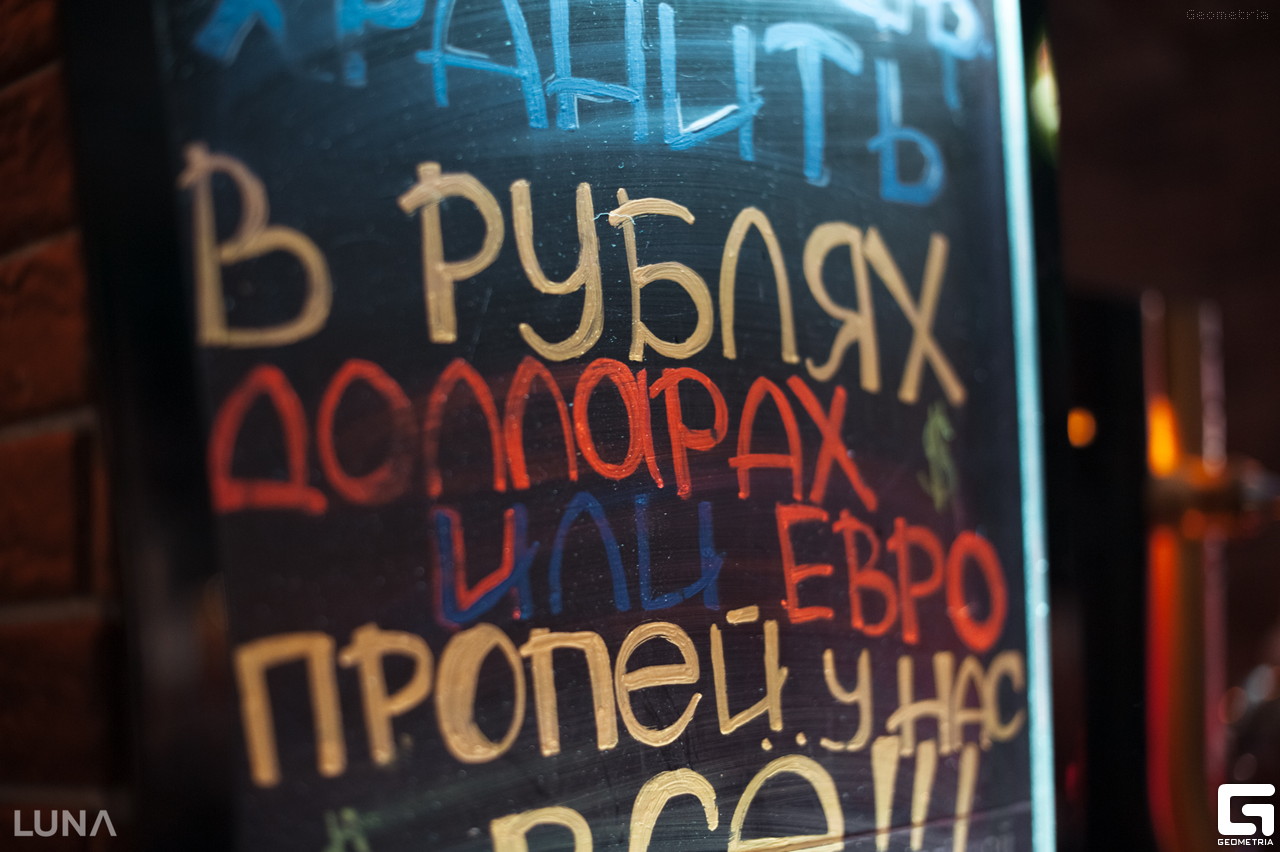 Geometria
ХРАНИТЬ
В РУБЛЯХ
ДОЛЛАРАХ $
ИЛИ ЕВРО
ПРОПЕЙ У НАС
ВСЁ!!!
LUNA
GEOMETRIA